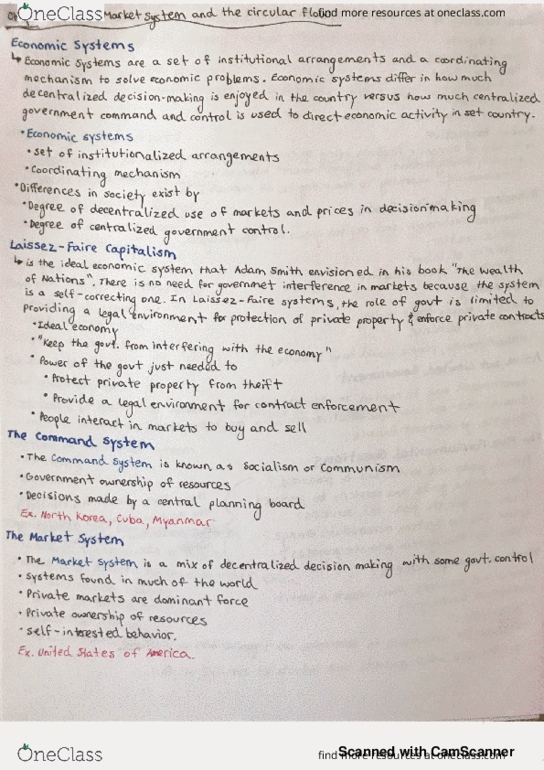 OneClass
Market System and the circular flow
find more resources at oneclass.com
Economic Systems
↳ Economic systems are a set of institutional arrangements and a coordinating
mechanism to solve economic problems. Economic systems differ in how much
decentralized decision-making is enjoyed in the country versus how much centralized
government command and control is used to direct economic activity in set country.
• Economic systems
• set of institutionalized arrangements
• Coordinating mechanism
• Differences in society exist by
• Degree of decentralized use of markets and prices in decisionmaking
• Degree of centralized government control.
Laissez-Faire Capitalism
↳ is the ideal economic system that Adam Smith envisioned in his book "The Wealth
of Nations". There is no need for governmet interference in markets because the system
is a self-correcting one. In Laissez-Faire systems, the role of govt is limited to
providing a legal environment for protection of private property & enforce private contracts
• Ideal economy
• "Keep the govt. from interfering with the economy"
• Power of the govt just needed to
• Protect private property from theift
• Provide a legal environment for contract enforcement
• People interact in markets to buy and sell
The Command System
• The Command System is known as Socialism or Communism
• Government ownership of resources
• Decisions made by a central planning board
Ex. North Korea, Cuba, Myanmar
The Market System
• The Market System is a mix of decentralized decision making with some govt. control
• systems found in much of the world
• Private markets are dominant force
• Private ownership of resources
• self-intrested behavior.
Ex. United States of America.
OneClass
find more resources at oneclass.com
Scanned with CamScanner